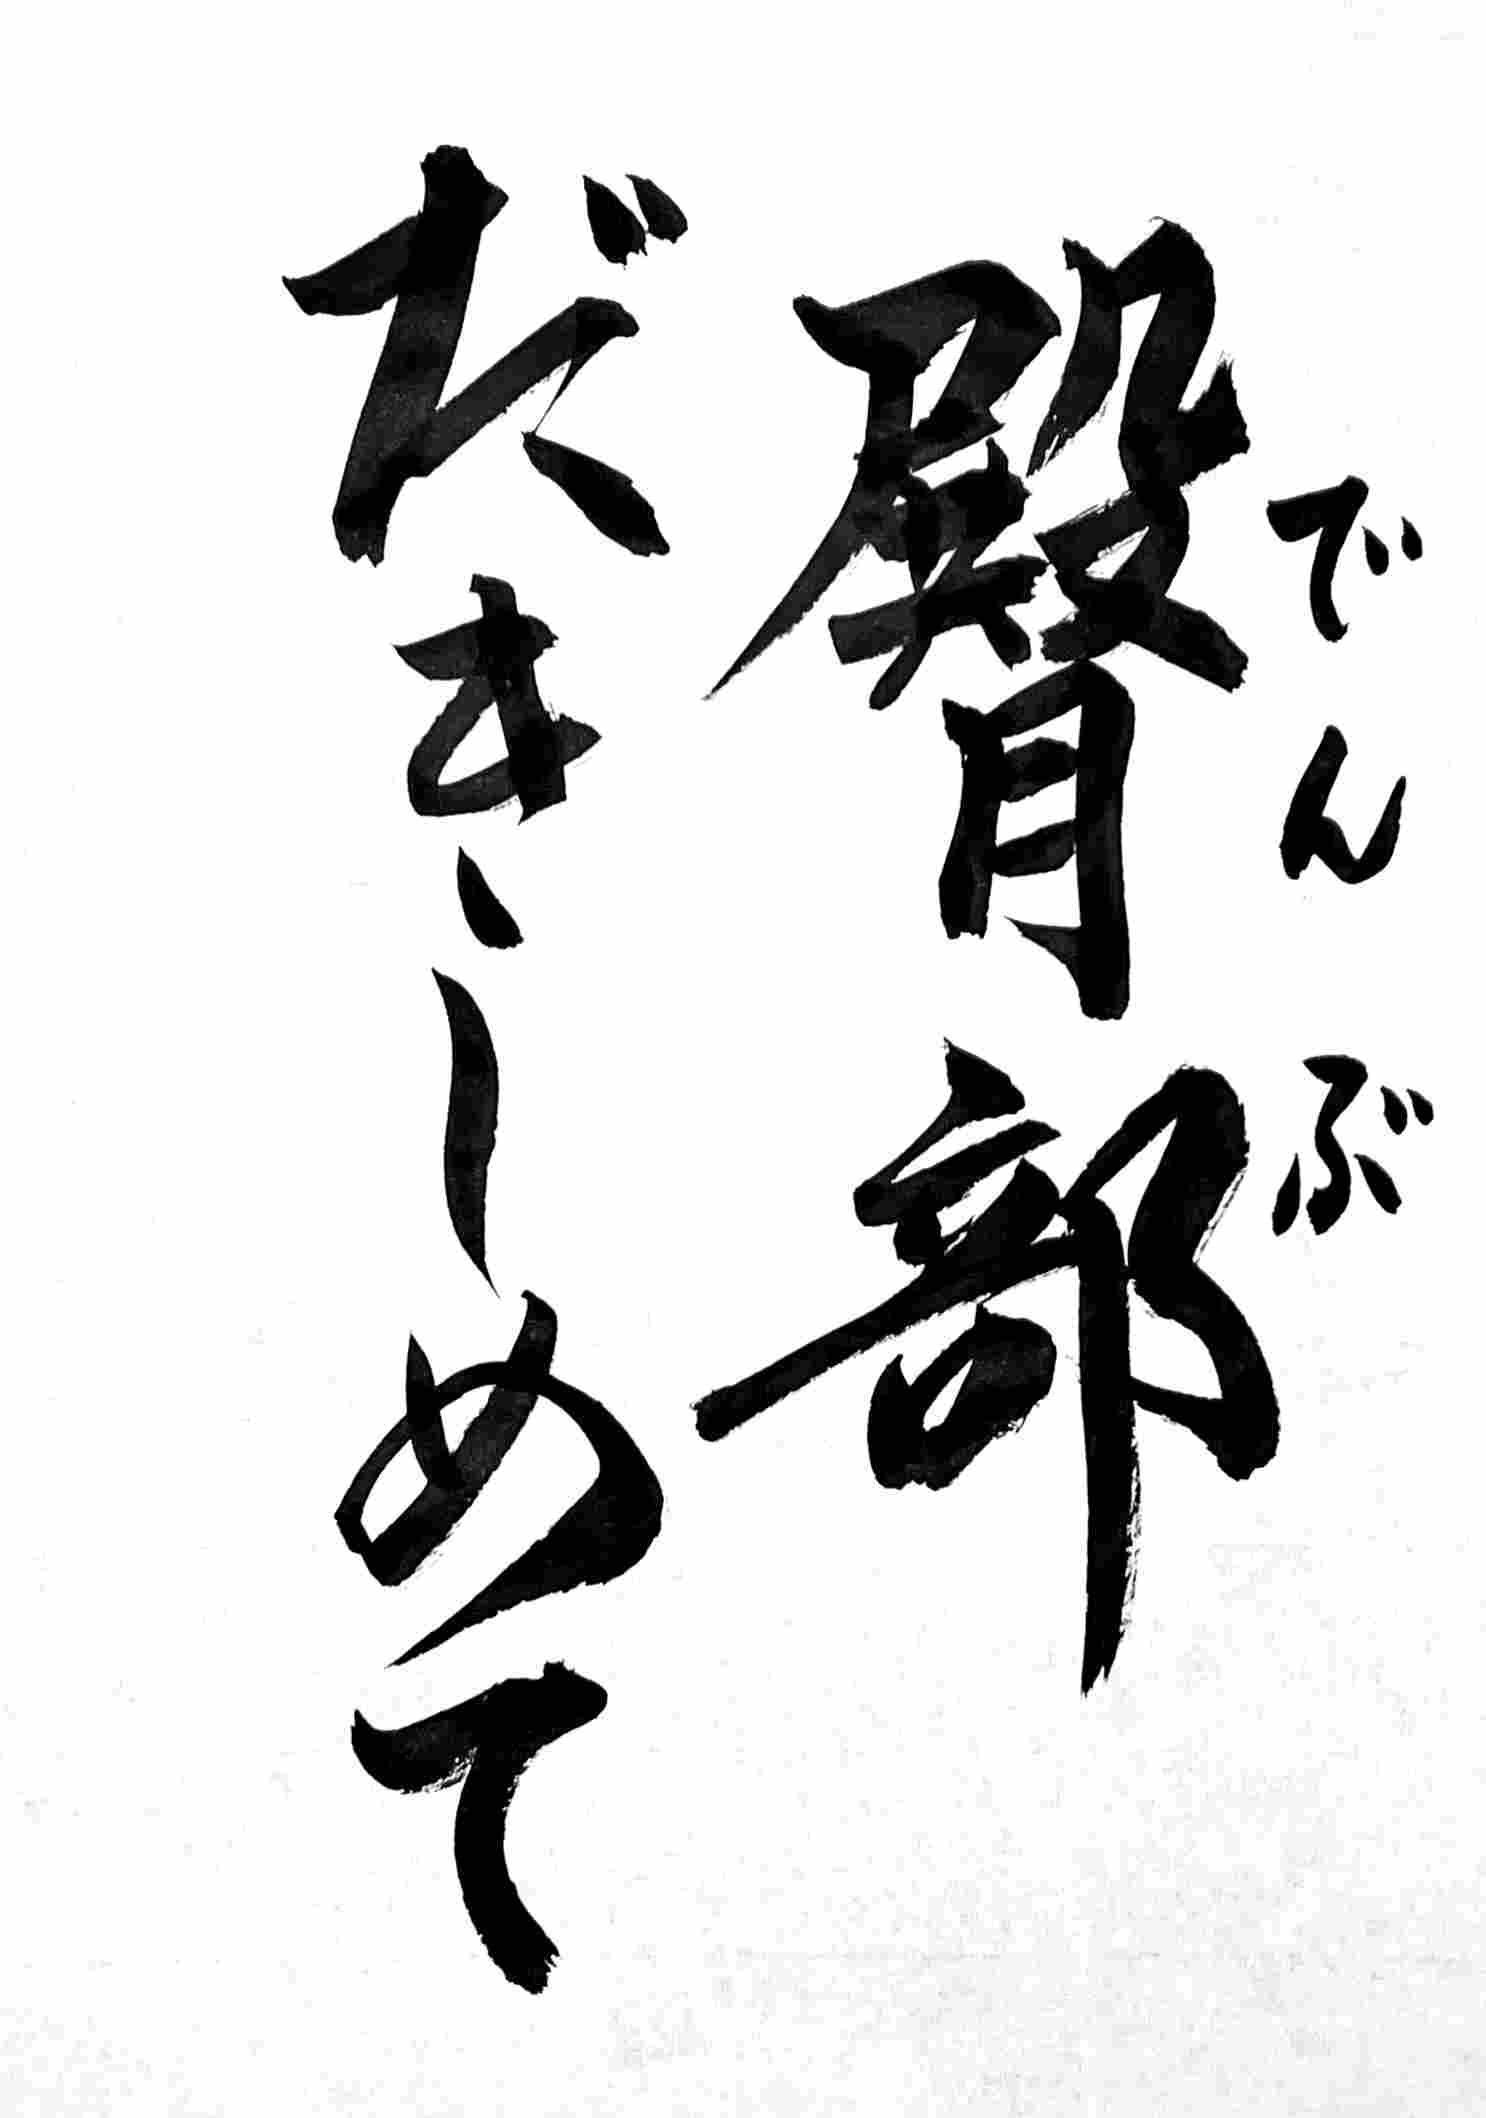 でんぶ
臀部
だきしめて